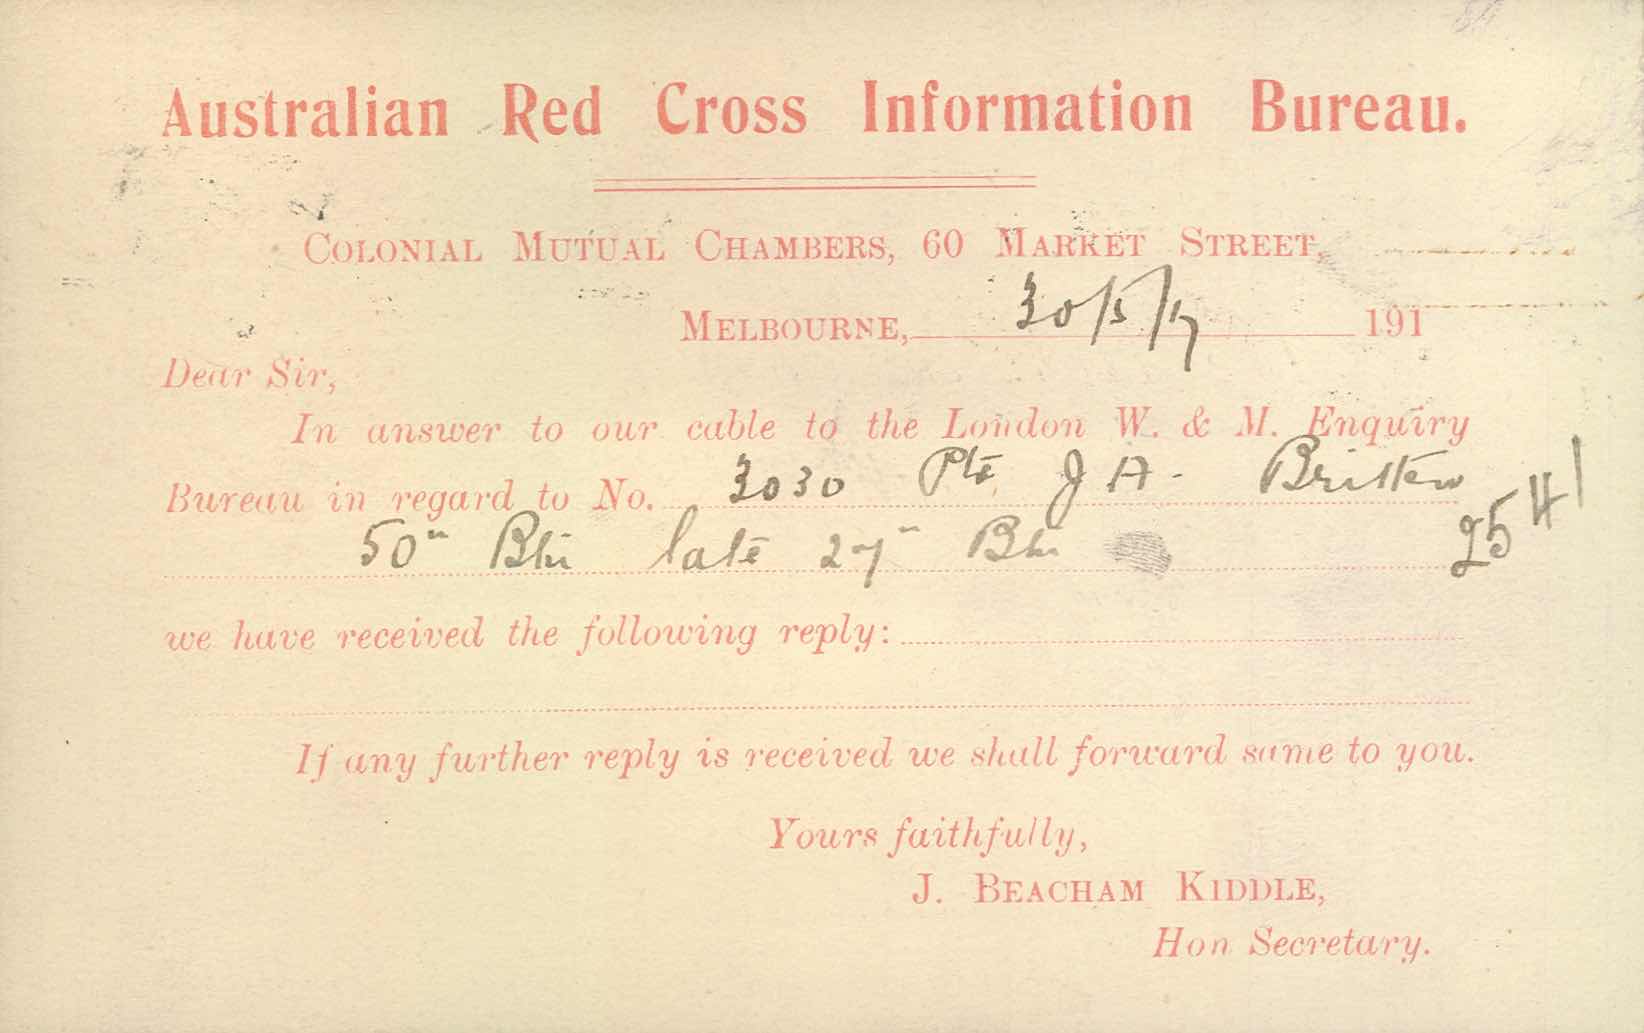 Australian Red Cross Information Bureau.
COLONIAL MUTUAL CHAMBERS, 60 MARKET STREET,
MELBOURNE, 30/5/17 191
Dear Sir,
In answer to our cable to the London W. & M. Enquiry
Bureau in regard to No. 3030 Pte J A. Britten
50th Btn late 27th Btn 2541
we have received the following reply:
If any further reply is received we shall forward same to you.
Yours faithfully,
J. BEACHAM KIDDLE,
Hon Secretary.